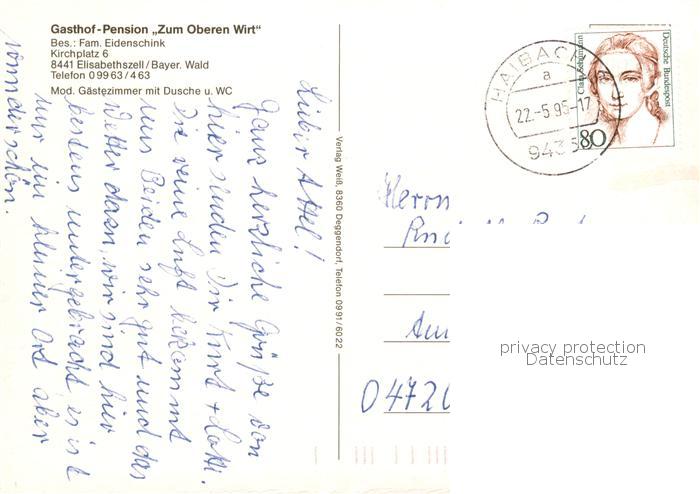 Gasthof-Pension „Zum Oberen Wirt“
Bes.: Fam. Eidenschink
Kirchplatz 6
8441 Elisabethszell/Bayer. Wald
Telefon 09963/463
Mod. Gästezimmer mit Dusche u. WC
Lieber Attel!
Ganz herzliche Grüße von
hier senden Dir Kurt + Lotti.
Die reine Luft bekommt
uns Beiden sehr gut und das
Wetter dazu, wir sind hier
bestens untergebracht es ist
nur ein kleiner Ort aber
wunderschön.
Verlag Weiß, 8360 Deggendorf, Telefon 0991/6022
HAIBACH
a
22.-5.95-17
9435
Clara Schumann
Deutsche Bundespost
80
Herrn
Am
privacy protection
Datenschutz